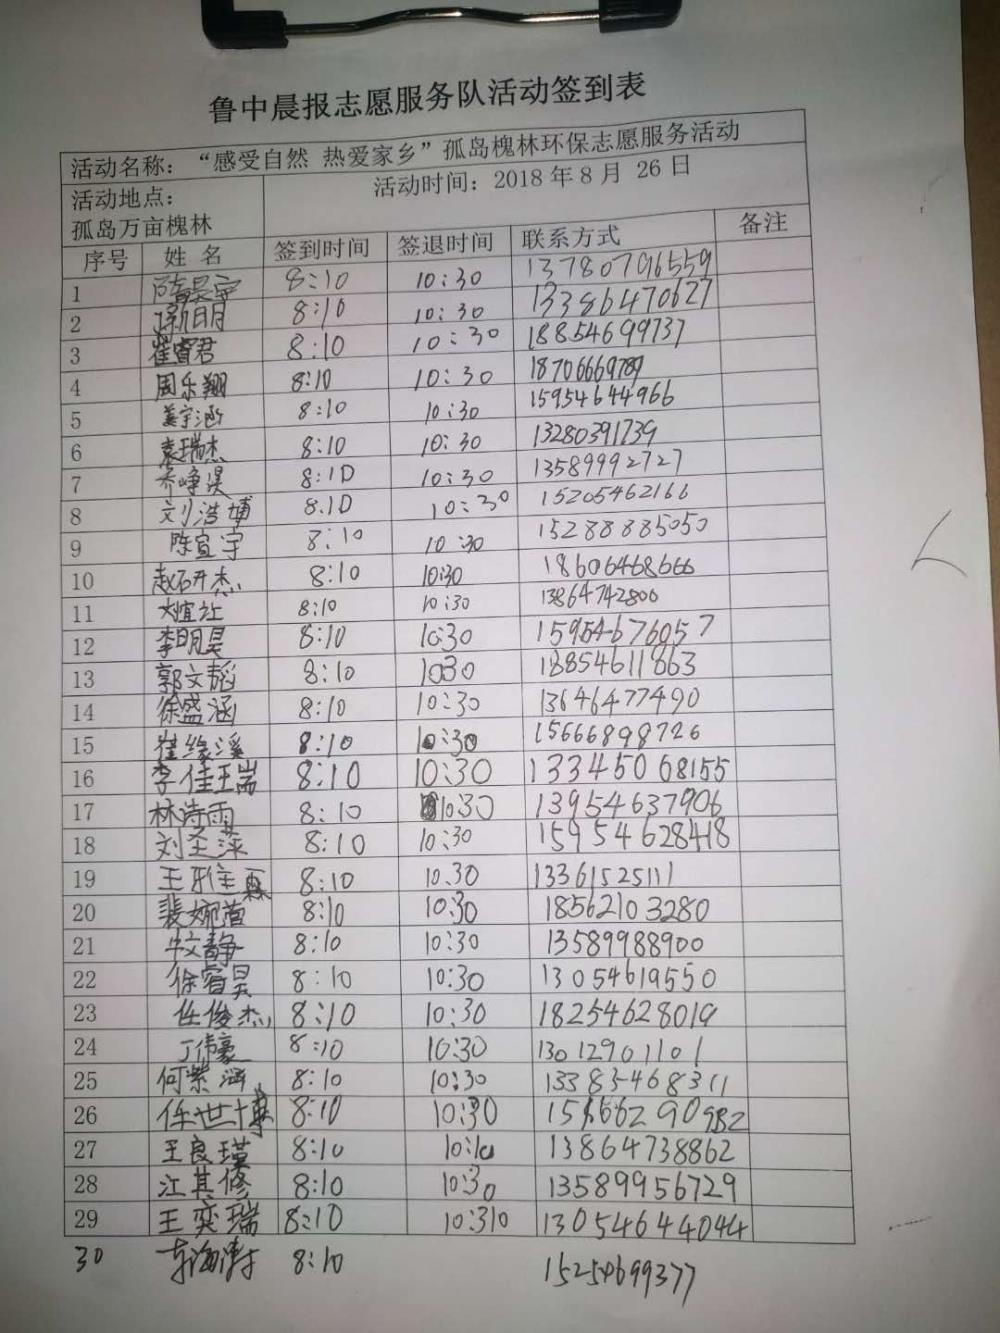 鲁中晨报志愿服务队活动签到表
活动名称：“感受自然 热爱家乡”孤岛槐林环保志愿服务活动
活动地点：
孤岛万亩槐林
活动时间：2018 年 8 月 26 日
序号 姓 名 签到时间 签退时间 联系方式 备注
1 8:10 10:30 13780796559
2 8:10 10:30 13386470627
3 翟睿君 8:10 10:30 18854699737
4 周乐翔 8:10 10:30 18706669789
5 姜宇涵 8:10 10:30 15954644966
6 袁瑞杰 8:10 10:30 13280391739
7 乔峥淏 8:10 10:30 13589992727
8 刘浩博 8:10 10:30 15205462166
9 陈宣宇 8:10 10:30 15288885050
10 赵研杰 8:10 10:30 18606468666
11 8:10 10:30 13864742800
12 李明昊 8:10 10:30 15954676057
13 郭文韬 8:10 10:30 18854611863
14 徐盛涵 8:10 10:30 13646477490
15 崔缘溪 8:10 10:30 15666898726
16 李佳瑞 8:10 10:30 13345068155
17 林诗雨 8:10 10:30 13954637906
18 刘圣萍 8:10 10:30 15954628418
19 8:10 10:30 13361525111
20 裴婉萱 8:10 10:30 18562103280
21 牛文静 8:10 10:30 13589988900
22 徐睿昊 8:10 10:30 13054619550
23 任俊杰 8:10 10:30 18254628019
24 丁伟豪 8:10 10:30 13012901101
25 何紫涵 8:10 10:30 13385468311
26 任世博 8:10 10:30
27 王良瑾 8:10 10:10 13864738862
28 江其修 8:10 10:30 13589956729
29 王奕瑞 8:10 10:310 13054644044
30 8:10 15254699377